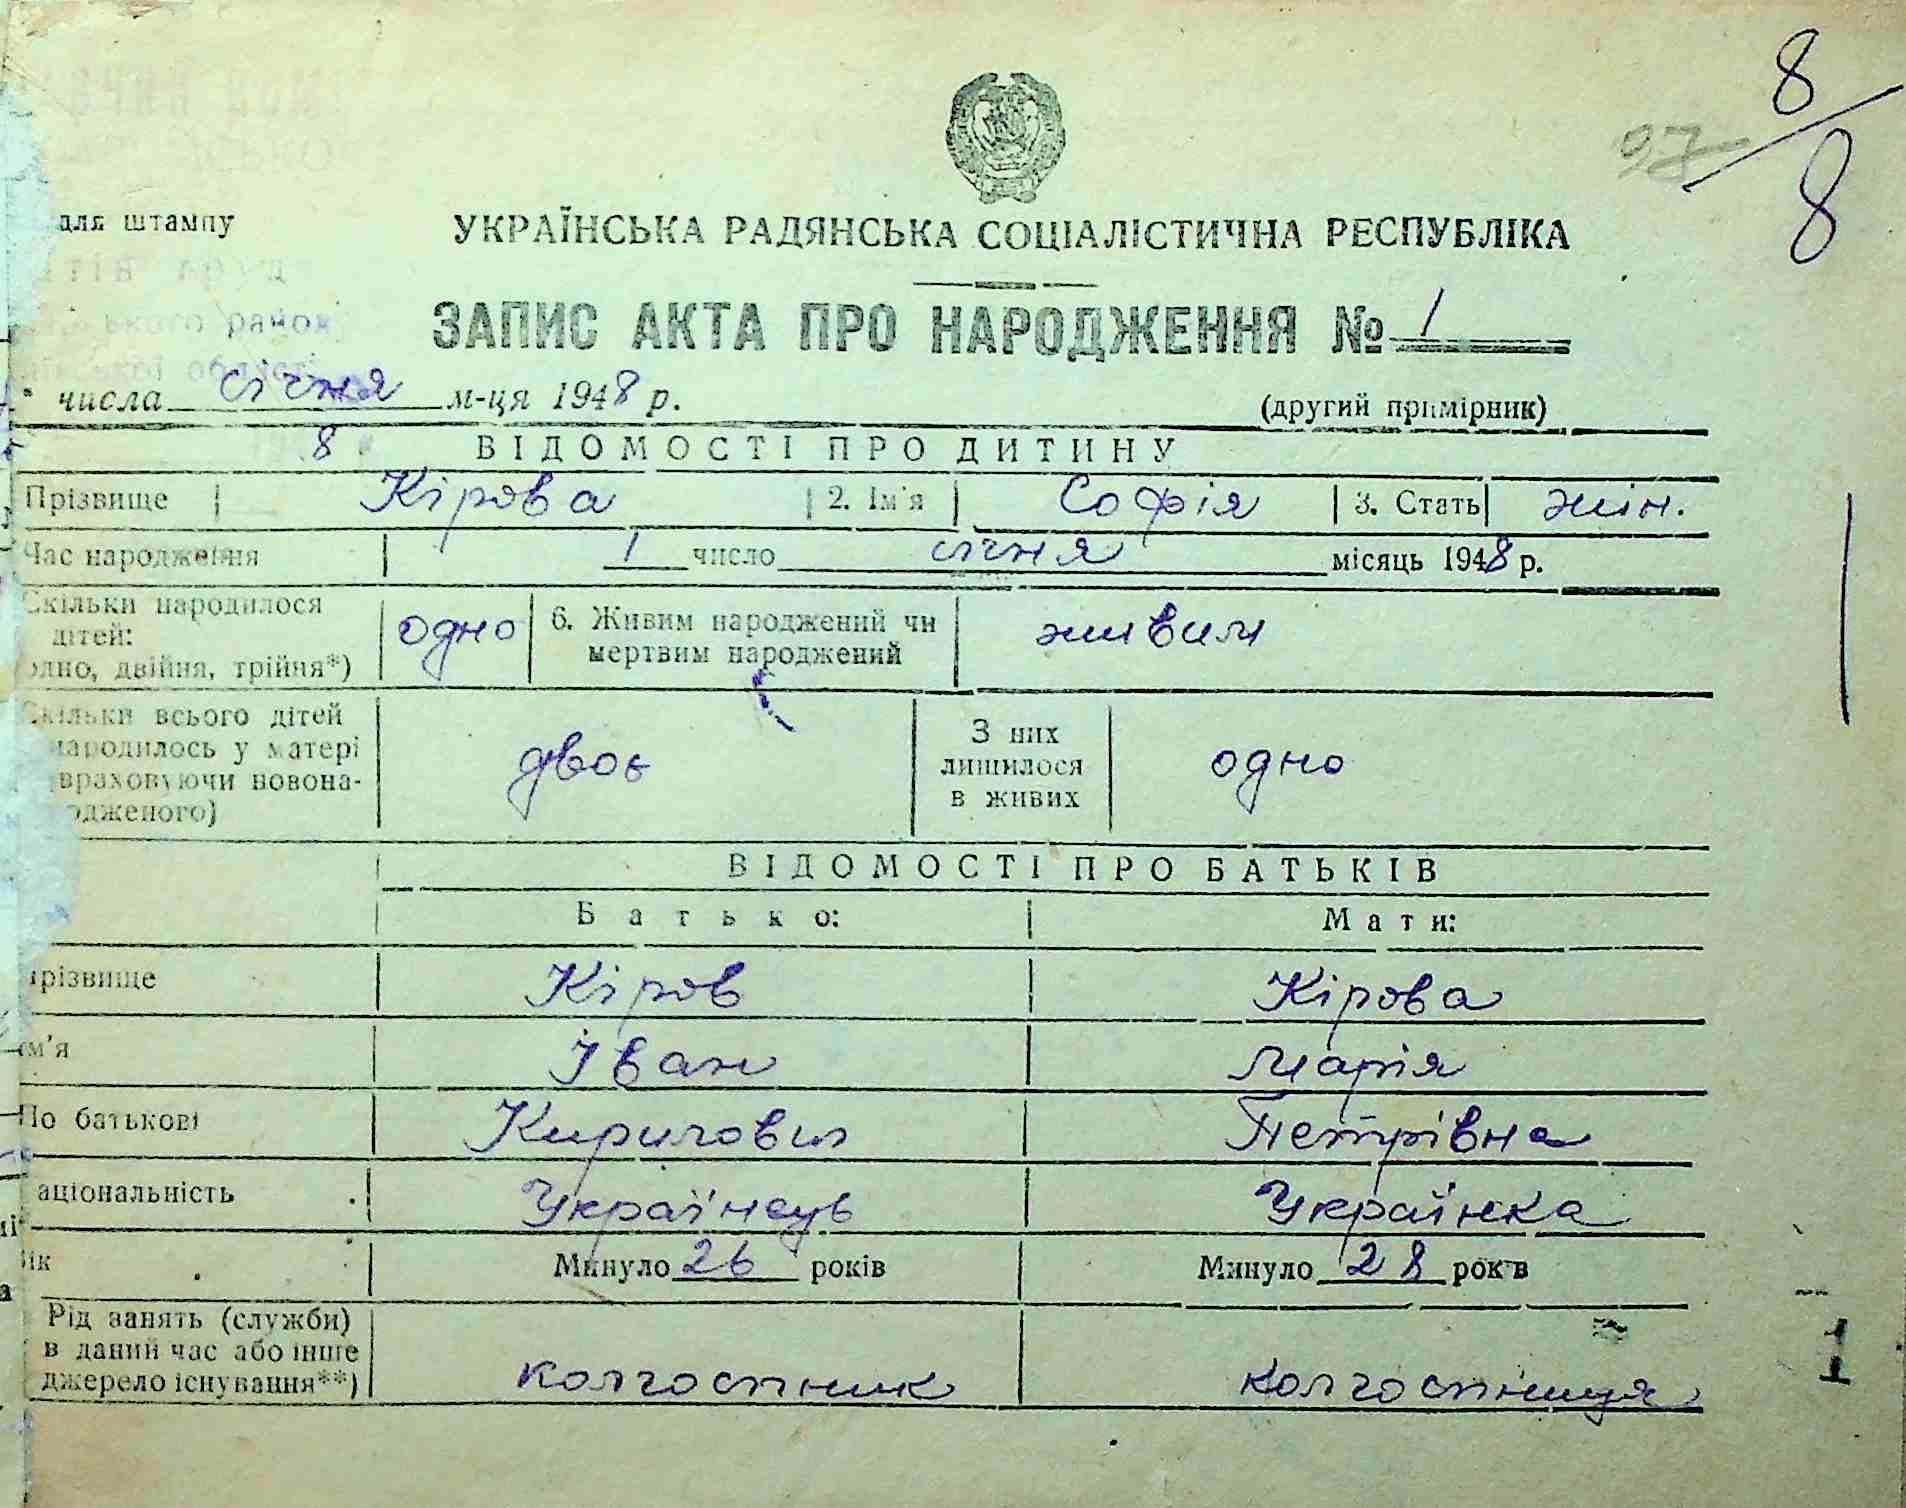 8/8
97
для штампу
УКРАЇНСЬКА РАДЯНСЬКА СОЦІАЛІСТИЧНА РЕСПУБЛІКА
ЗАПИС АКТА ПРО НАРОДЖЕННЯ № 1
числа січня м-ця 1948 р.
(другий примірник)
8
ВІДОМОСТІ ПРО ДИТИНУ
Прізвище Кірова 2. Ім'я Софія 3. Стать жін.
Час народження 1 число січня місяць 1948 р.
Скільки народилося дітей: одно, двійня, трійня*) одно 6. Живим народжений чи мертвим народжений живим
Скільки всього дітей народилось у матері враховуючи новона-одженого) двоє З них лишилося в живих одно
ВІДОМОСТІ ПРО БАТЬКІВ
Батько: Мати:
прізвище Кіров Кірова
ім'я Іван Марія
По батькові Кирилович Петрівна
аціональність Українець Українка
ік Минуло 26 років Минуло 28 років
Рід занять (служби) в даний час або інше джерело існування**) колгоспник колгоспниця
1